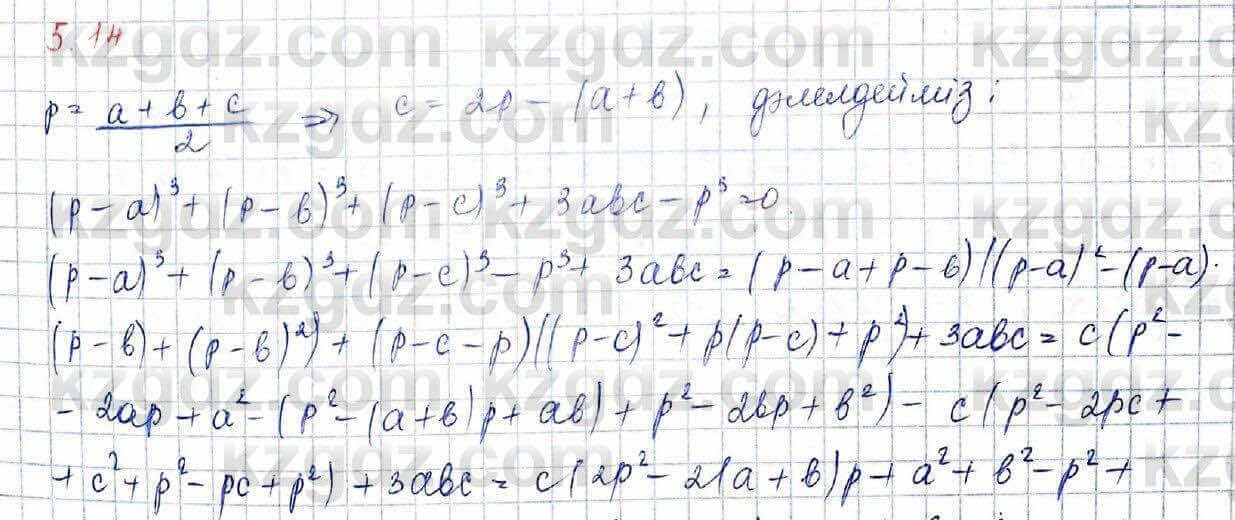 5.14
p = (a + b + c)/2 => c = 2p - (a + b), дәлелдейміз:
(p - a)³ + (p - b)³ + (p - c)³ + 3abc - p³ = 0.
(p - a)³ + (p - b)³ + (p - c)³ - p³ + 3abc = (p - a + p - b)((p - a)² - (p - a)·
(p - b) + (p - b)²) + (p - c - p)((p - c)² + p(p - c) + p²) + 3abc = c(p² -
- 2ap + a² - (p² - (a + b)p + ab) + p² - 2bp + b²) - c(p² - 2pc +
+ c² + p² - pc + p²) + 3abc = c(2p² - 2(a + b)p + a² + b² - p² +
kzgdz.com